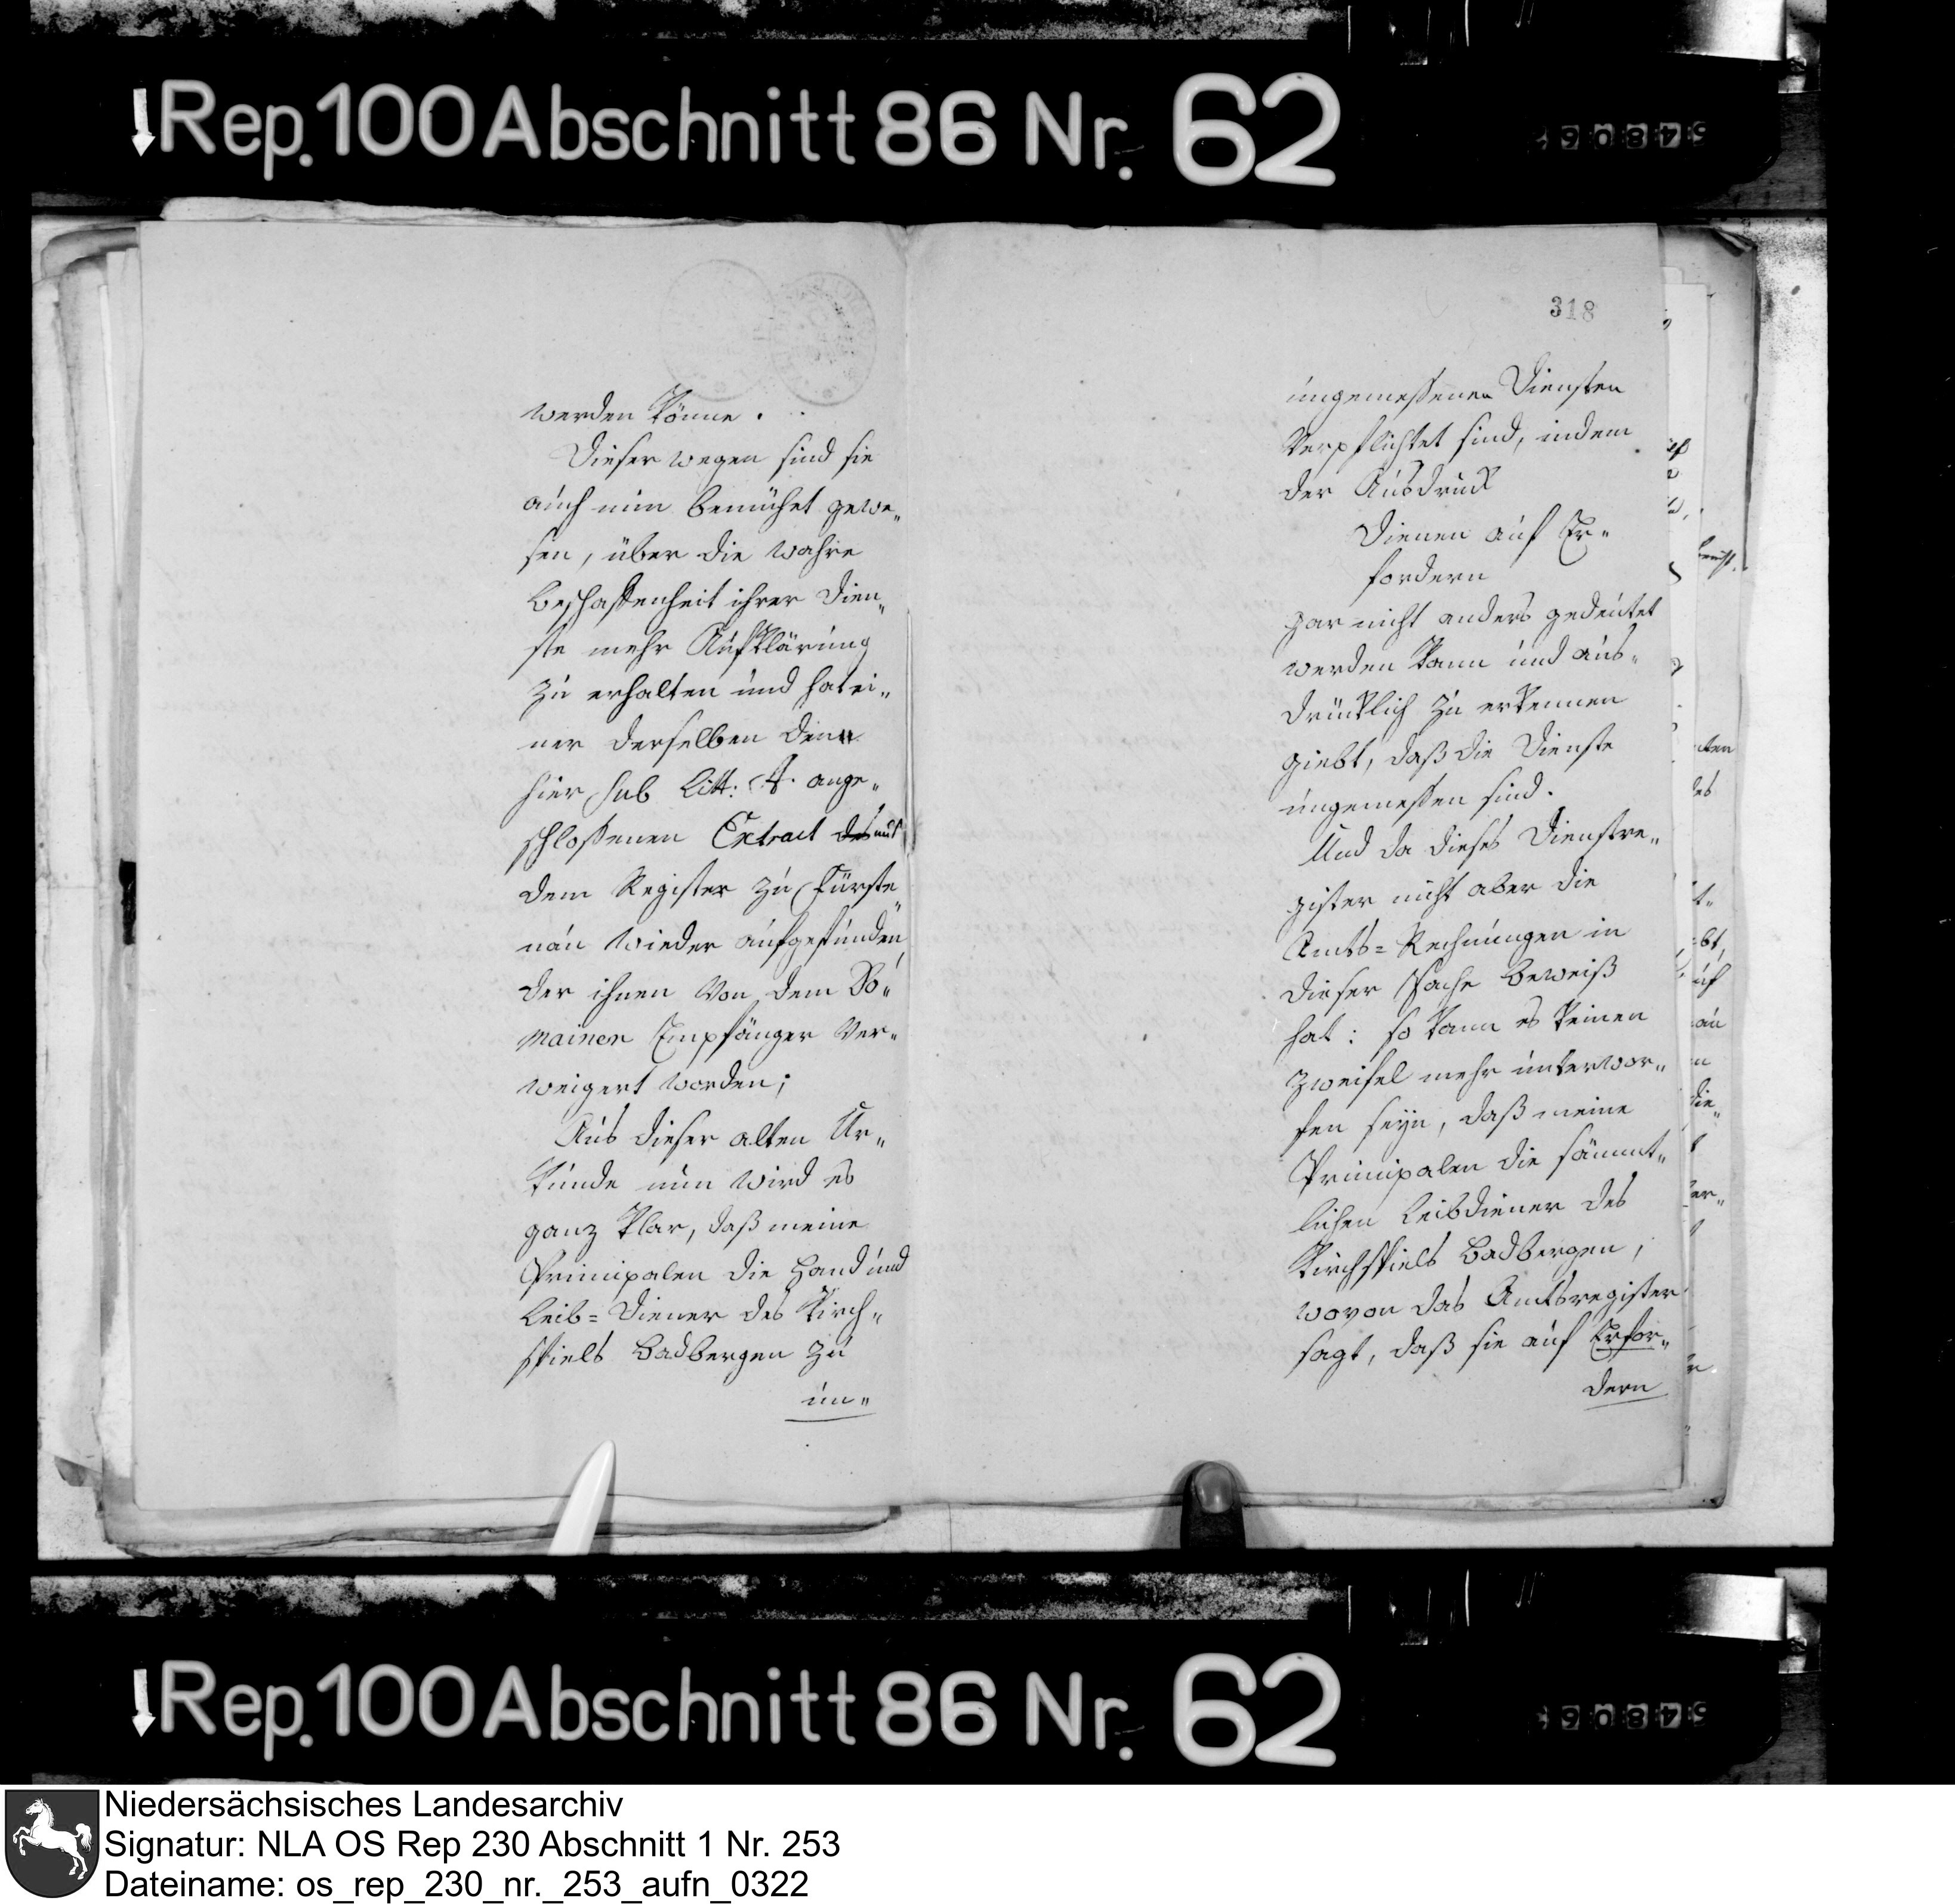 Rep. 100 Abschnitt 86 Nr. 62
werden könne.
Dieser wegen sind sie
auch nun bemühet gewe„
sen, über die wahre
Beschaffenheit ihrer Dien„
ste mehr Aufklärung
zu erhalten und hat ei„
ner derselben denn
hier sub Litt: A. ange„
schlossenen Extract des aus
dem Register zu Fürste„
nau wieder aufgefunden,
der ihnen von dem Do„
mainen Empfänger ver„
weigert worden;
Aus dieser alten Ur„
kunde nun wird es
ganz klar, daß meine
Principalen die Hand und
Leib= Diener des Kirch„
spiels Badbergen zu
un„
318
ungemessenen Diensten
verpflichtet sind, indem
der Ausdruck
Dienen auf Er„
fordern
gar nicht anders gedeutet
werden kann und aus„
drücklich zu erkennen
giebt, daß die Dienste
ungemessen sind.
Und da dieses Dienstre„
gister nicht aber die
Amts= Rechnungen in
dieser Sache Beweiß
hat: so kann es keinen
Zweifel mehr unterwor„
fen seyn, daß meine
Principalen die sämmt„
lichen Leibdiener des
Kirchspiels Badbergen,
wovon das Amtsregister
sagt, daß sie auf Erfor„
dern
Rep. 100 Abschnitt 86 Nr. 62
Niedersächsisches Landesarchiv
Signatur: NLA OS Rep 230 Abschnitt 1 Nr. 253
Dateiname: os_rep_230_nr._253_aufn_0322